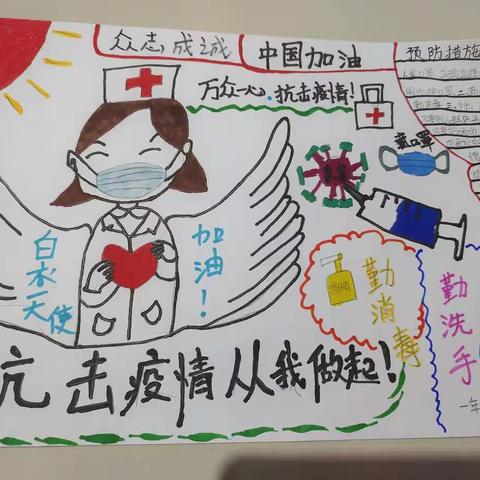 众志成诚
中国加油
预防措施
万众一心.抗击疫情!
戴口罩
白衣天使
加油!
勤消毒
勤洗手
抗击疫情从我做起!
一年